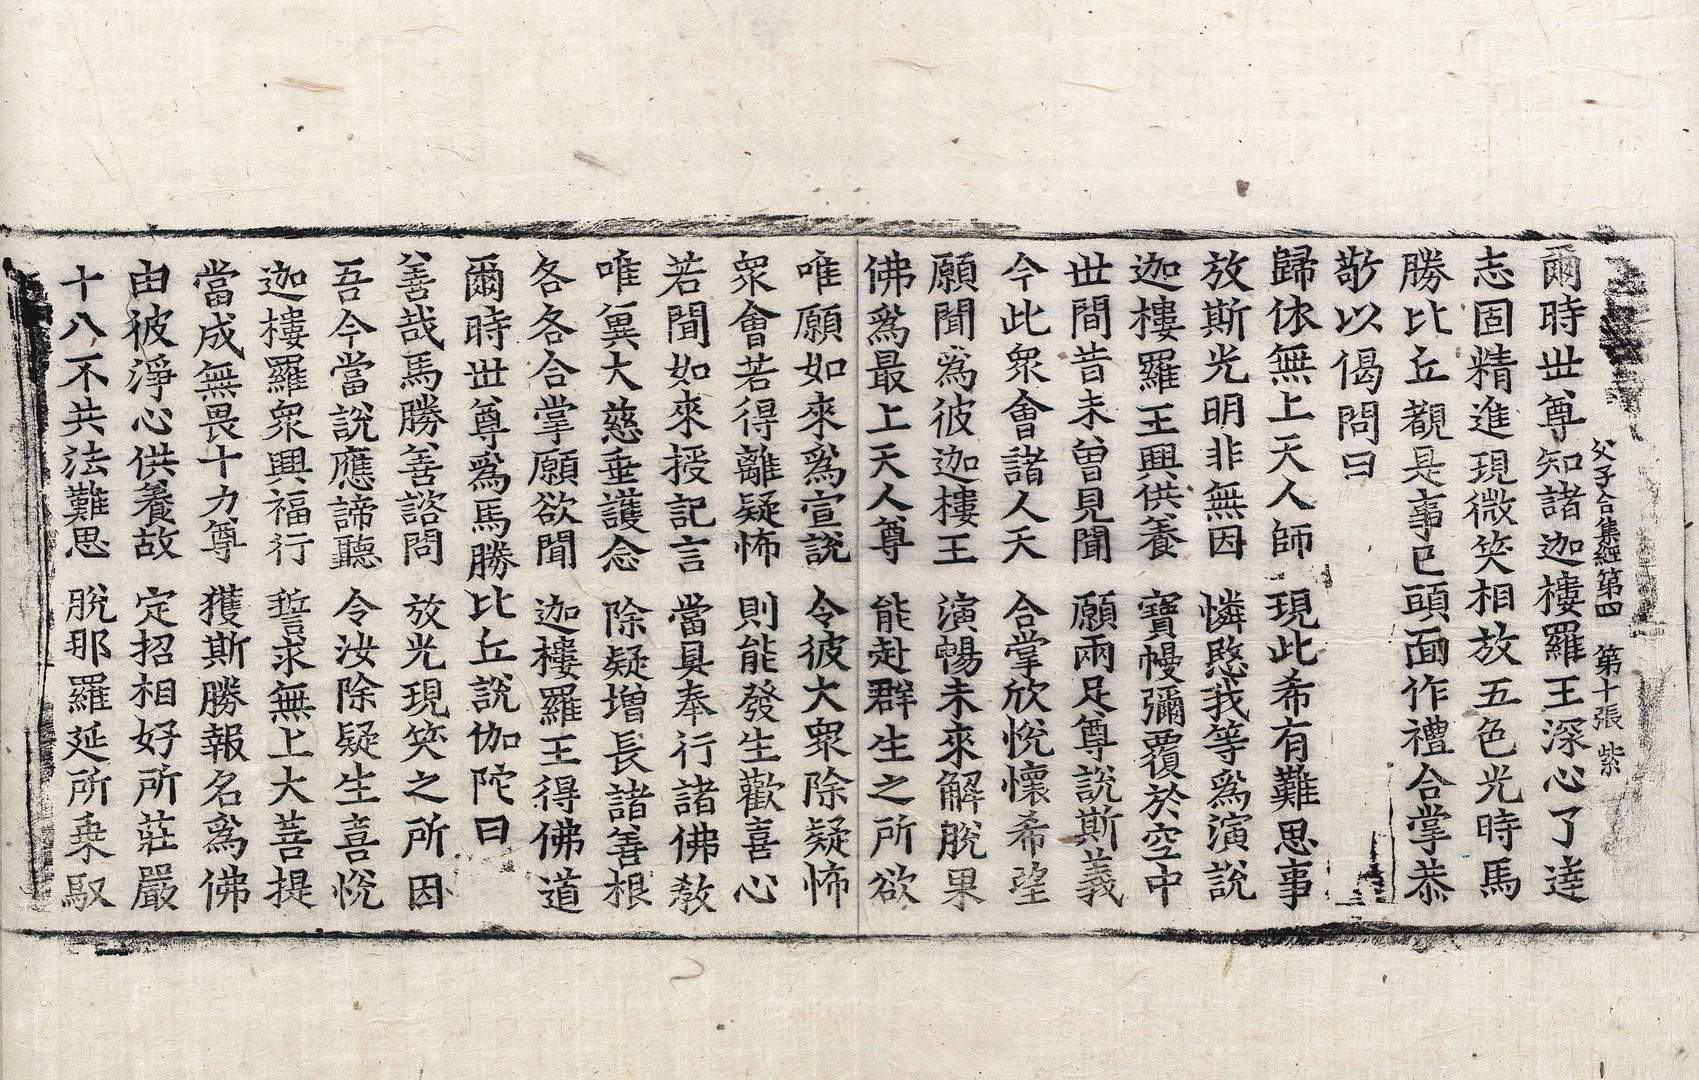 父子合集經第四　第十張　紫
爾時世尊知諸迦樓羅王深心了達
志固精進現微笑相放五色光時馬
勝比丘覩是事已頭面作禮合掌恭
敬以偈問曰
歸依無上天人師　現此希有難思事
放斯光明非無因　憐愍我等爲演說
迦樓羅王興供養　寶幔彌覆於空中
世間昔未曾見聞　願兩足尊說斯義
今此衆會諸人天　合掌欣悅懷希望
願聞爲彼迦樓王　演暢未來解脫果
佛爲最上天人尊　能赴群生之所欲
唯願如來爲宣說　令彼大衆除疑怖
衆會若得離疑怖　則能發生歡喜心
若聞如來授記言　當具奉行諸佛教
唯冀大慈垂護念　除疑增長諸善根
各各合掌願欲聞　迦樓羅王得佛道
爾時世尊爲馬勝比丘說伽陀曰
善哉馬勝善諮問　放光現笑之所因
吾今當說應諦聽　令汝除疑生喜悅
迦樓羅衆興福行　誓求無上大菩提
當成無畏十力尊　獲斯勝報名爲佛
由彼淨心供養故　定招相好所莊嚴
十八不共法難思　脫那羅延所乘馭